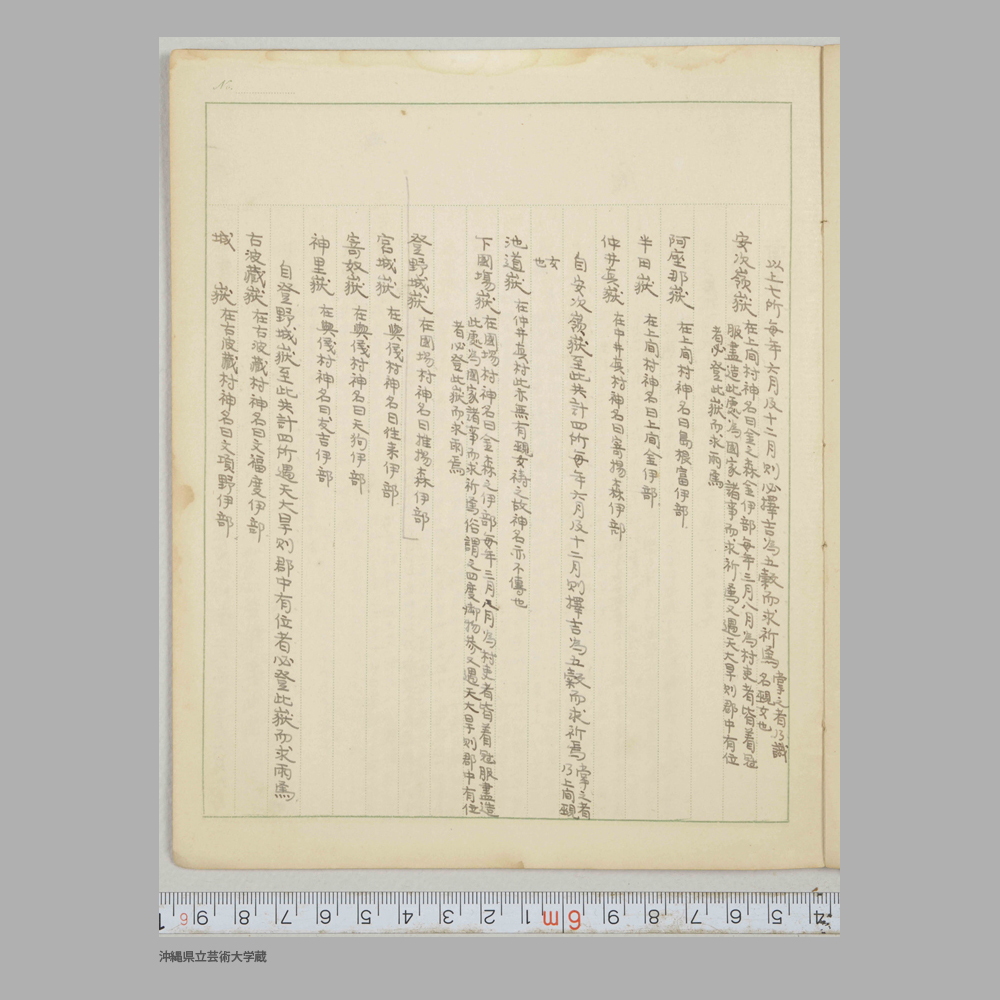 以上七所毎年六月及十二月則必擇吉為五穀而求祈焉 掌之者乃識
名覡女也
安次嶺嶽 在上間村神名曰金之森金伊部毎年三月八月為村吏者皆着冠
服盡造此處為國家諸事而求祈焉又遇天大旱則郡中有位
者必登此嶽而求雨焉
阿座那嶽 在上間村神名曰島根富伊部
半田嶽 在上間村神名曰上間金伊部
仲井真嶽 在中井真村神名曰寄揚森伊部
自安次嶺嶽至此共計四所毎年六月及十二月則擇吉為五穀而求祈焉 掌之者
乃上間覡
女也
池道嶽 在仲井真村此亦無有覡女祷之故神名亦不傳也
下國場嶽 在國場村神名曰金森之伊部毎年三月八月為村吏者皆着冠服盡造
此處為國家諸事而求祈焉俗謂之四度御物参又遇天大旱則郡中有位
者必登此嶽而求雨焉
登野城嶽 在國場村神名曰推揚森伊部
宮城嶽 在與儀村神名曰往来伊部
寄奴嶽 在與儀村神名曰天狗伊部
神里嶽 在與儀村神名曰友吉伊部
自登野城嶽至此共計四所遇天大旱則郡中有位者必登此嶽而求雨焉
古波藏嶽 在古波藏村神名曰文福度伊部
城嶽 在古波藏村神名曰文項野伊部
No.
1 6 9 8 7 6 5 4 3 2 1 6m 9 8 7 6 5 4
沖縄県立芸術大学蔵